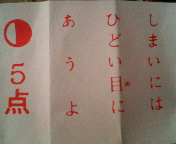 しまいには
ひどい目に
あうよ
5点